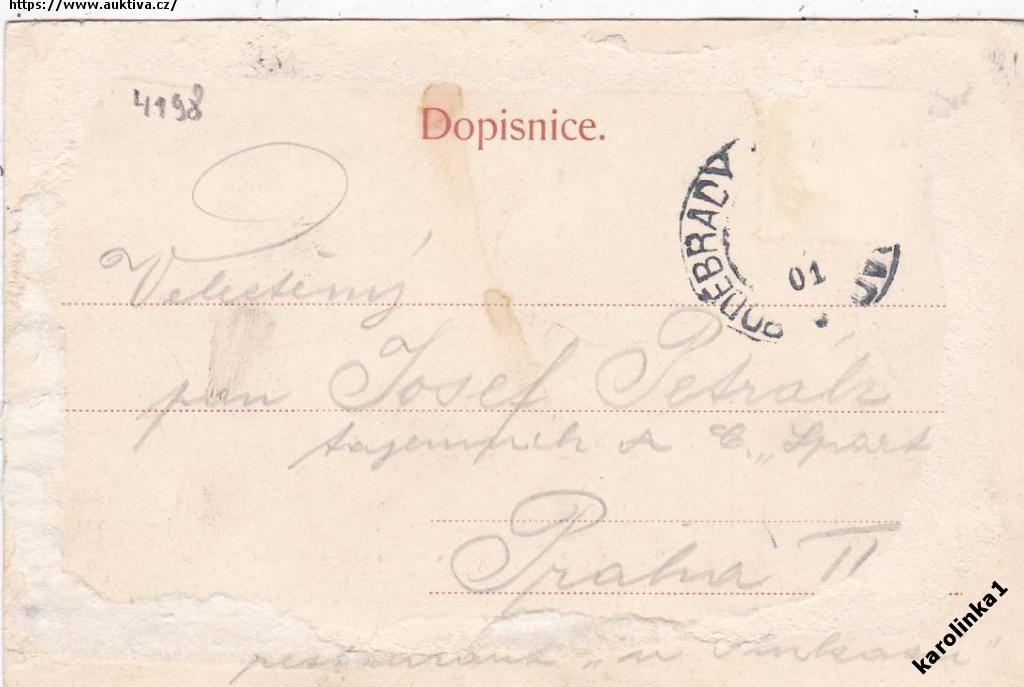 https://www.auktiva.cz/
4198
Dopisnice.
PODĚBRADY
01
Velectěný
pan Josef Petrák
tajemník A C. „Spart
Praha II
restaurant „u
karolinka1